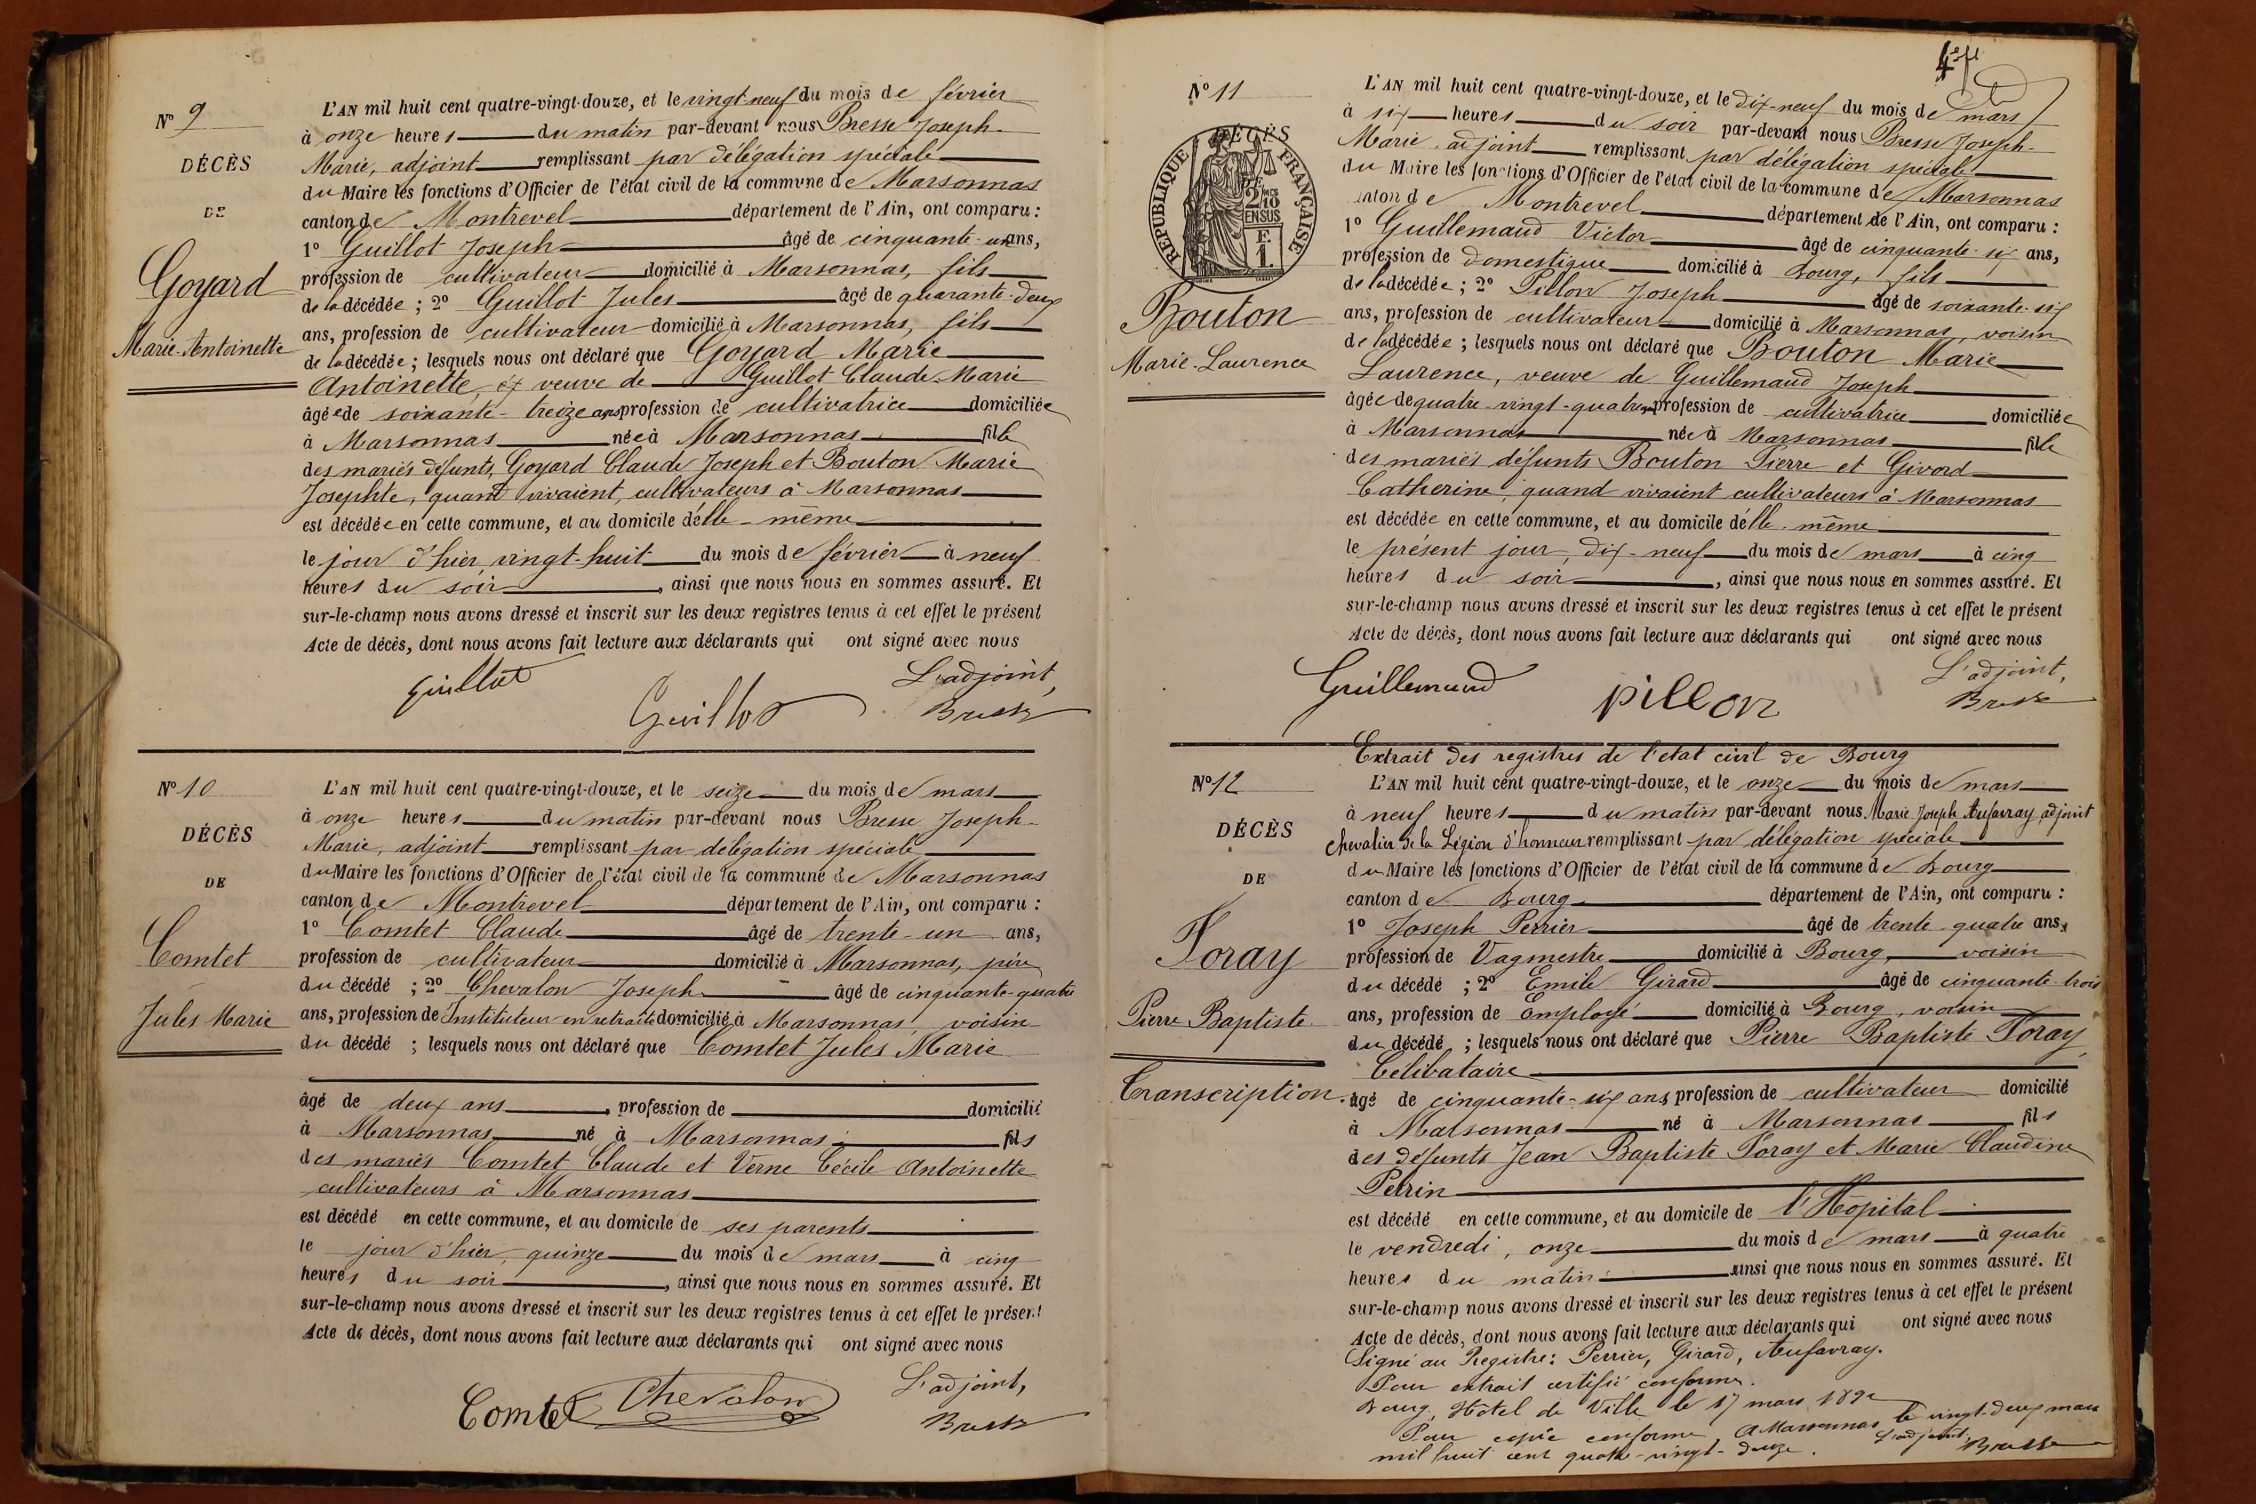 Nº 9
DÉCÈS
DE
Goyard
Marie-Antoinette
L'AN mil huit cent quatre-vingt-douze, et le vingt-neuf du mois de février
à onze heures du matin par-devant nous Bresse Joseph-
Marie, adjoint remplissant par délégation spéciale
du Maire les fonctions d'Officier de l'état civil de la commune de Marsonnas
canton de Montrevel département de l'Ain, ont comparu :
1º Guillot Joseph âgé de cinquante-un ans,
profession de cultivateur domicilié à Marsonnas, fils
de la décédée ; 2º Guillot Jules âgé de quarante-deux
ans, profession de cultivateur domicilié à Marsonnas, fils
de la décédée ; lesquels nous ont déclaré que Goyard Marie
Antoinette, veuve de Guillot Claude-Marie
âgée de soixante-treize ans profession de cultivatrice domiciliée
à Marsonnas née à Marsonnas fille
des mariés défunts, Goyard Claude Joseph et Bouton Marie
Josephte, quand vivaient, cultivateurs à Marsonnas
est décédée en cette commune, et au domicile d'elle-même
le jour d'hier, vingt-huit du mois de février à neuf
heures du soir, ainsi que nous nous en sommes assuré. Et
sur-le-champ nous avons dressé et inscrit sur les deux registres tenus à cet effet le présent
Acte de décès, dont nous avons fait lecture aux déclarants qui ont signé avec nous
L'adjoint,
Guillot
Guillot
Bresse
Nº 10
DÉCÈS
DE
Comtet
Jules Marie
L'AN mil huit cent quatre-vingt-douze, et le seize du mois de mars
à onze heures du matin par-devant nous Bresse Joseph-
Marie, adjoint remplissant par délégation spéciale
du Maire les fonctions d'Officier de l'état civil de la commune de Marsonnas
canton de Montrevel département de l'Ain, ont comparu :
1º Comtet Claude âgé de trente-un ans,
profession de cultivateur domicilié à Marsonnas, père
du décédé ; 2º Chevalon Joseph âgé de cinquante-quatre
ans, profession de Instituteur en retraite domicilié à Marsonnas, voisin
du décédé ; lesquels nous ont déclaré que Comtet Jules Marie
âgé de deux ans, profession de domicilié
à Marsonnas né à Marsonnas fils
des mariés Comtet Claude et Verne Cécile Antoinette
cultivateurs à Marsonnas
est décédé en cette commune, et au domicile de ses parents
le jour d'hier, quinze du mois de mars à cinq
heures du soir, ainsi que nous nous en sommes assuré. Et
sur-le-champ nous avons dressé et inscrit sur les deux registres tenus à cet effet le présent
Acte de décès, dont nous avons fait lecture aux déclarants qui ont signé avec nous
L'adjoint,
Comtet Chevalon
Bresse
Nº 11
DÉCÈS
DE
RÉPUBLIQUE FRANÇAISE
2/10
EN SUS
F.
1.
Bouton
Marie-Laurence
4
L'AN mil huit cent quatre-vingt-douze, et le dix-neuf du mois de mars
à six heures du soir par-devant nous Bresse Joseph-
Marie adjoint remplissant par délégation spéciale
du Maire les fonctions d'Officier de l'état civil de la commune de Marsonnas
canton de Montrevel département de l'Ain, ont comparu :
1º Guillemaud Victor âgé de cinquante-six ans,
profession de domestique domicilié à Bourg, fils
de la décédée ; 2º Pillon Joseph âgé de soixante-six
ans, profession de cultivateur domicilié à Marsonnas, voisin
de la décédée ; lesquels nous ont déclaré que Bouton Marie
Laurence, veuve de Guillemaud Joseph
âgée de quatre-vingt-quatre ans profession de cultivatrice domiciliée
à Marsonnas née à Marsonnas fille
des mariés défunts Bouton Pierre et Givord
Catherine, quand vivaient cultivateurs à Marsonnas
est décédée en cette commune, et au domicile d'elle-même
le présent jour, dix-neuf du mois de mars à cinq
heures du soir, ainsi que nous nous en sommes assuré. Et
sur-le-champ nous avons dressé et inscrit sur les deux registres tenus à cet effet le présent
Acte de décès, dont nous avons fait lecture aux déclarants qui ont signé avec nous
L'adjoint,
Guillemaud pillon
Bresse
Nº 12
DÉCÈS
DE
Foray
Pierre Baptiste
Transcription.
Extrait des registres de l'état civil de Bourg
L'AN mil huit cent quatre-vingt-douze, et le onze du mois de mars
à neuf heures du matin par-devant nous Marie Joseph Aufavray, adjoint
chevalier de la Légion d'honneur remplissant par délégation spéciale
du Maire les fonctions d'Officier de l'état civil de la commune de Bourg
canton de Bourg département de l'Ain, ont comparu :
1º Joseph Perrier âgé de trente-quatre ans,
profession de Vagmestre domicilié à Bourg, voisin
du décédé ; 2º Emile Girard âgé de cinquante-trois
ans, profession de Employé domicilié à Bourg, voisin
du décédé ; lesquels nous ont déclaré que Pierre Baptiste Foray,
Célibataire
âgé de cinquante-six ans, profession de cultivateur domicilié
à Marsonnas né à Marsonnas fils
des défunts Jean Baptiste Foray et Marie Claudine
Perrin
est décédé en cette commune, et au domicile de l'Hôpital
le vendredi, onze du mois de mars à quatre
heures du matin ainsi que nous nous en sommes assuré. Et
sur-le-champ nous avons dressé et inscrit sur les deux registres tenus à cet effet le présent
Acte de décès, dont nous avons fait lecture aux déclarants qui ont signé avec nous
Signé au Registre : Perrier, Girard, Aufavray.
Pour extrait certifié conforme.
Bourg, Hôtel de Ville le 17 mars 1892
Pour copie conforme, A Marsonnas, le vingt-deux mars
mil huit cent quatre-vingt-douze. L'adjoint, Bresse